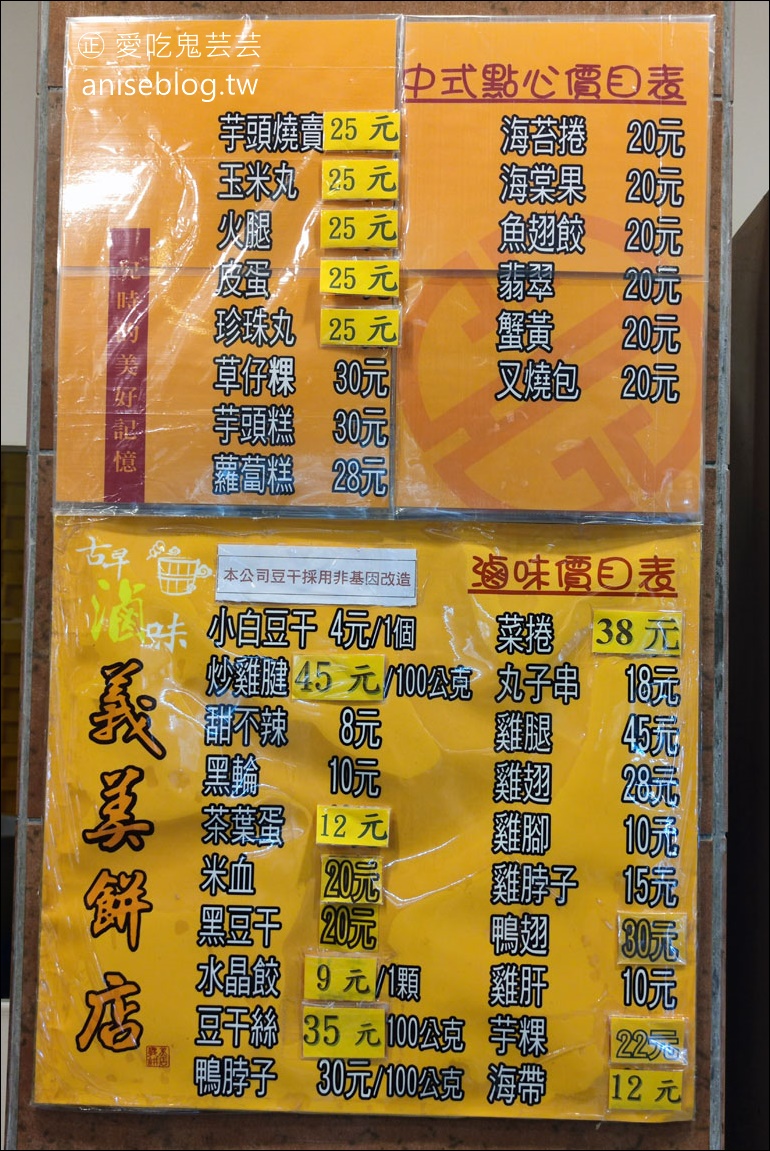 ㊣ 愛吃鬼芸芸
aniseblog.tw
中式點心價目表
芋頭燒賣 25 元
玉米丸 25 元
火腿 25 元
皮蛋 25 元
珍珠丸 25 元
草仔粿 30元
芋頭糕 30元
蘿蔔糕 28元
海苔捲 20元
海棠果 20元
魚翅餃 20元
翡翠 20元
蟹黃 20元
叉燒包 20元
兒時的美好記憶
古早
滷味
本公司豆干採用非基因改造
滷味價目表
義美餅店
小白豆干 4元/1個
炒雞腱 45 元/100公克
甜不辣 8元
黑輪 10元
茶葉蛋 12 元
米血 20元
黑豆干 20元
水晶餃 9 元/1顆
豆干絲 35 元/100公克
鴨脖子 30元/100公克
菜捲 38 元
丸子串 18元
雞腿 45元
雞翅 28元
雞腳 10元
雞脖子 15元
鴨翅 30元
雞肝 10元
芋粿 22元
海帶 12 元